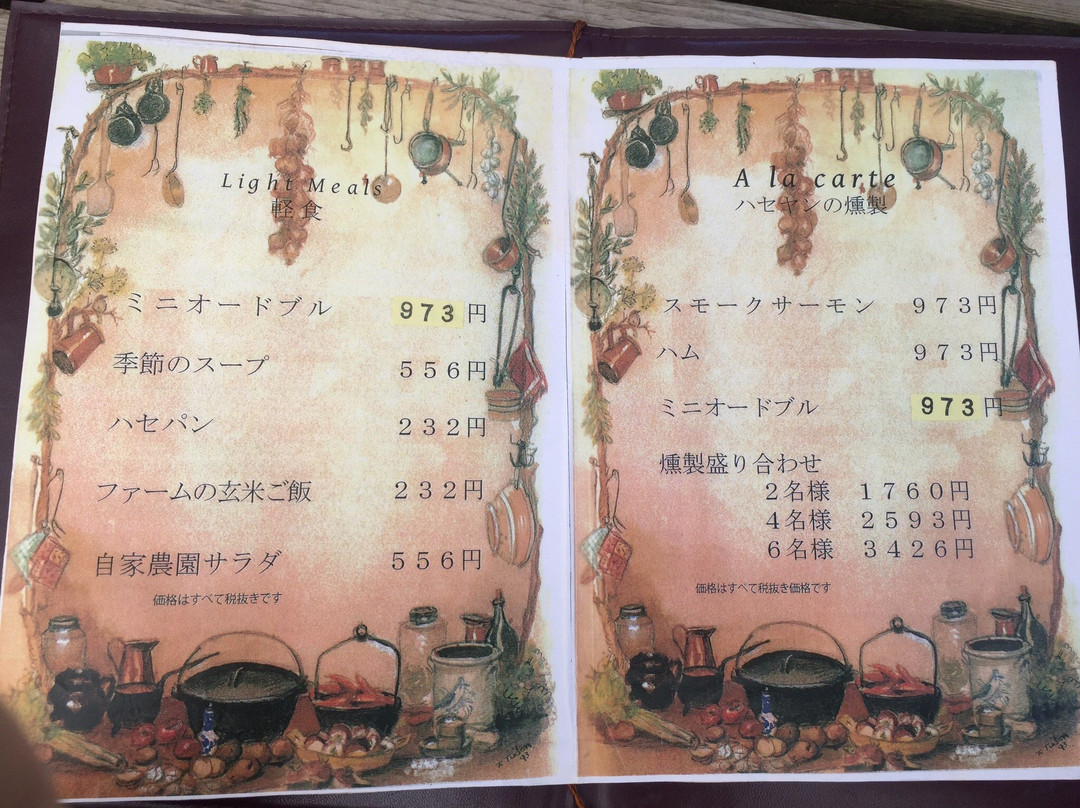 Light Meals
軽食
ミニオードブル 973円
季節のスープ 556円
ハセパン 232円
ファームの玄米ご飯 232円
自家農園サラダ 556円
価格はすべて税抜きです
A la carte
ハセヤンの燻製
スモークサーモン 973円
ハム 973円
ミニオードブル 973円
燻製盛り合わせ
2名様 1760円
4名様 2593円
6名様 3426円
価格はすべて税抜き価格です